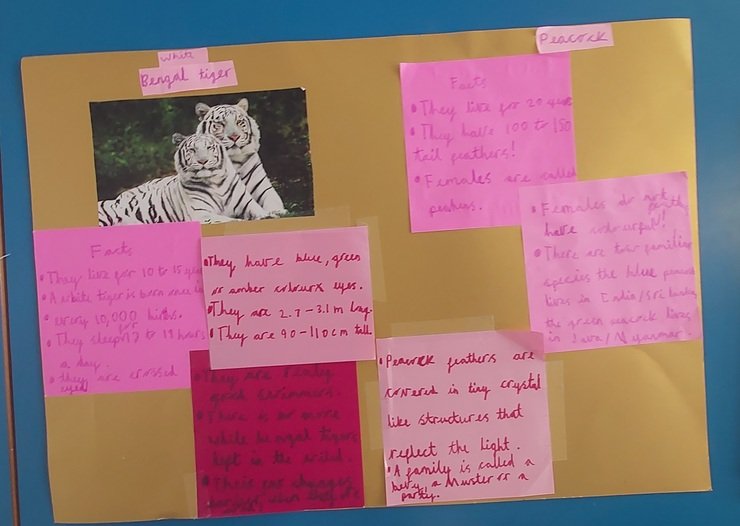 White
Bengal tiger
Facts
• They live for 10 to 15
• A white tiger is born once
every 10,000 births.
• They sleep for to 18 hours
a day.
• they are crossed
eyed
• They have blue, green
or amber eyes.
• They are 2.7-3.1 m long.
• They are 90-110cm tall.
• They are really
good swimmers.
• There is no more
white bengal tigers
left in the wild.
•
Peacock
Facts
• They live for 20 years
• They have 100 to 150
tail feathers!
• Females are called
peahens.
• Females do not
have colourful!
• There are two familiar
species the blue peacock
lives in India/Sri lanka
the green peacock lives
in Java/Myanmar.
• Peacock feathers are
covered in tiny crystal
like structures that
reflect the light.
• A family is called a
bevy, a Muster or a
party.